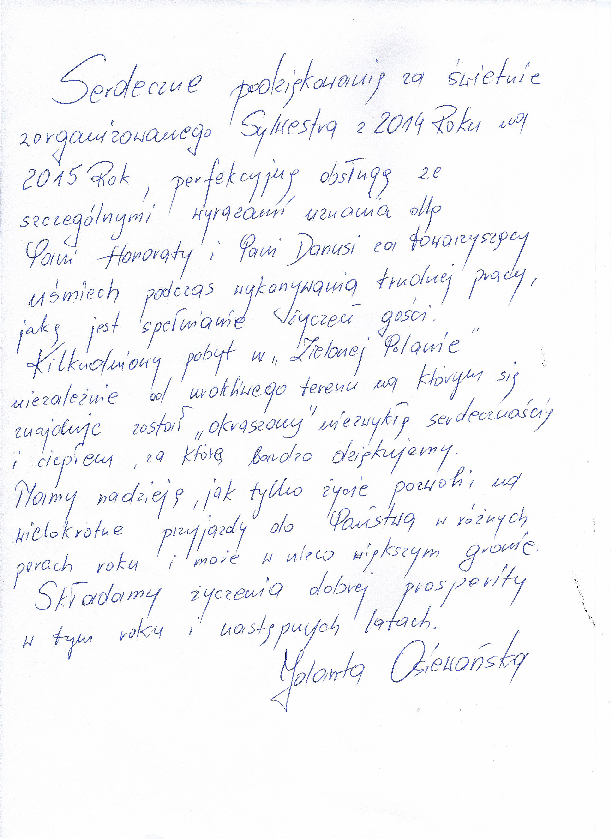 Serdeczne podziękowanię za świetnie
zorganizowanego Sylwestra z 2014 Roku na
2015 Rok, perfekcyjną obsługę ze
szczególnymi wyrazami uznania dla
Pani Honoraty i Pani Danusi za towarzyszący
uśmiech podczas wykonywania trudnej pracy,
jaką jest spełnianie życzeń gości.
Kilkudniowy pobyt w „Zielonej Polanie"
niezależnie od urokliwego terenu na którym się
znajduje został „okraszony" niezwykłą serdecznością
i ciepłem, za którą bardzo dziękujemy.
Mamy nadzieję, jak tylko życie pozwoli, na
wielokrotne przyjazdy do Państwa w różnych
porach roku i może w nieco większym gronie.
Składamy życzenia dobrej prosperity
w tym roku i następnych latach.
Jolanta Osiewańska